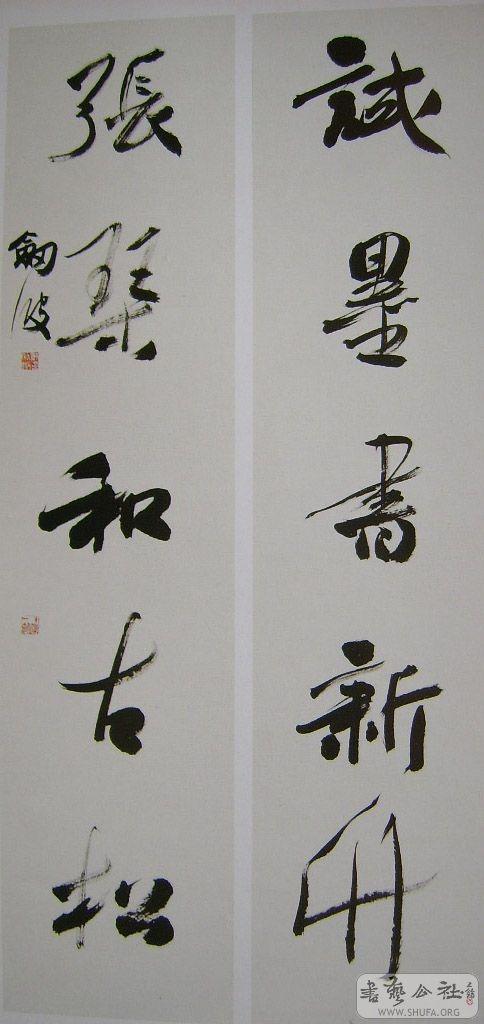 試墨書新竹
張琴和古松
劍波
書藝公社
WWW.SHUFA.ORG